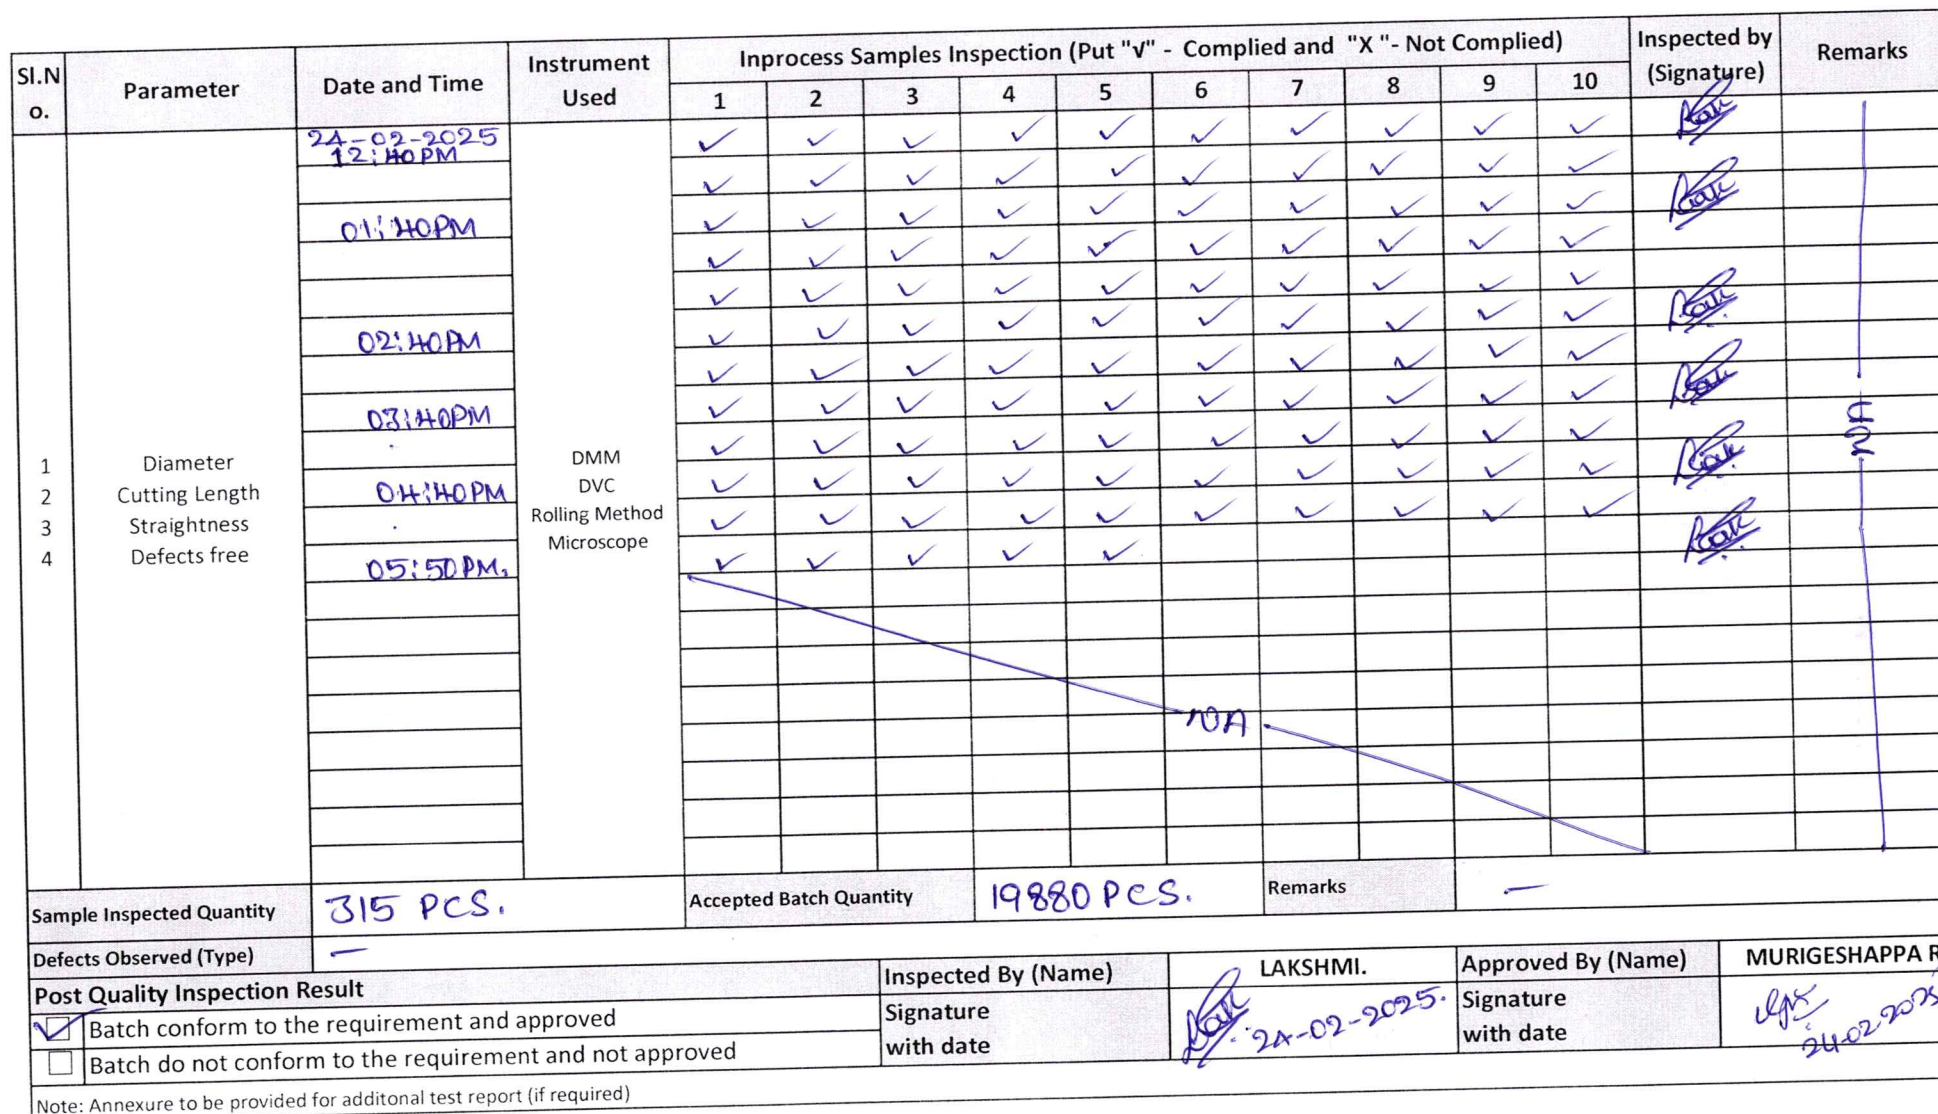 Sl.No. Parameter Date and Time Instrument Used Inprocess Samples Inspection (Put "√" - Complied and "X "- Not Complied) Inspected by (Signature) Remarks
1 2 3 4 5 6 7 8 9 10
24-02-2025
12:40PM
✓ ✓ ✓ ✓ ✓ ✓ ✓ ✓ ✓ ✓
✓ ✓ ✓ ✓ ✓ ✓ ✓ ✓ ✓ ✓
01:40PM ✓ ✓ ✓ ✓ ✓ ✓ ✓ ✓ ✓ ✓
✓ ✓ ✓ ✓ ✓ ✓ ✓ ✓ ✓ ✓
✓ ✓ ✓ ✓ ✓ ✓ ✓ ✓ ✓ ✓
02:40PM ✓ ✓ ✓ ✓ ✓ ✓ ✓ ✓ ✓ ✓
✓ ✓ ✓ ✓ ✓ ✓ ✓ ✓ ✓ ✓
03:40PM ✓ ✓ ✓ ✓ ✓ ✓ ✓ ✓ ✓ ✓
✓ ✓ ✓ ✓ ✓ ✓ ✓ ✓ ✓ ✓
04:40PM ✓ ✓ ✓ ✓ ✓ ✓ ✓ ✓ ✓ ✓
✓ ✓ ✓ ✓ ✓ ✓ ✓ ✓ ✓ ✓
05:50PM. ✓ ✓ ✓ ✓ ✓
1 Diameter DMM
2 Cutting Length DVC
3 Straightness Rolling Method
4 Defects free Microscope
NA
NA
Sample Inspected Quantity 315 PCS. Accepted Batch Quantity 19880 PCS. Remarks —
Defects Observed (Type) —
Post Quality Inspection Result
✓ Batch conform to the requirement and approved
Batch do not conform to the requirement and not approved
Inspected By (Name) LAKSHMI.
Signature with date 24-02-2025.
Approved By (Name) MURIGESHAPPA R
Signature with date 24-02-2025
Note: Annexure to be provided for additonal test report (if required)